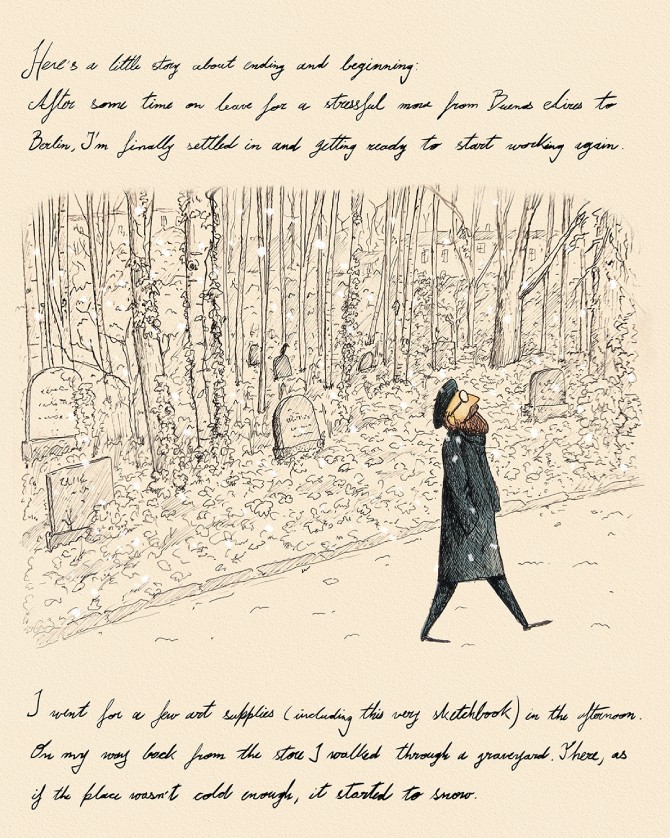 Here's a little story about ending and beginning:
After some time on leave for a stressful move from Buenos Aires to
Berlin, I'm finally settled in and getting ready to start working again.
I went for a few art supplies (including this very sketchbook) in the afternoon.
On my way back from the store I walked through a graveyard. There, as
if the place wasn't cold enough, it started to snow.